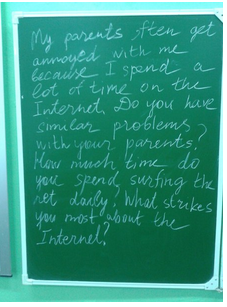 My parents often get
annoyed with me
because I spend a
lot of time on the
Internet. Do you have
similar problems
with your parents?
How much time do
you spend surfing the
net daily? What strikes
you most about the
Internet?